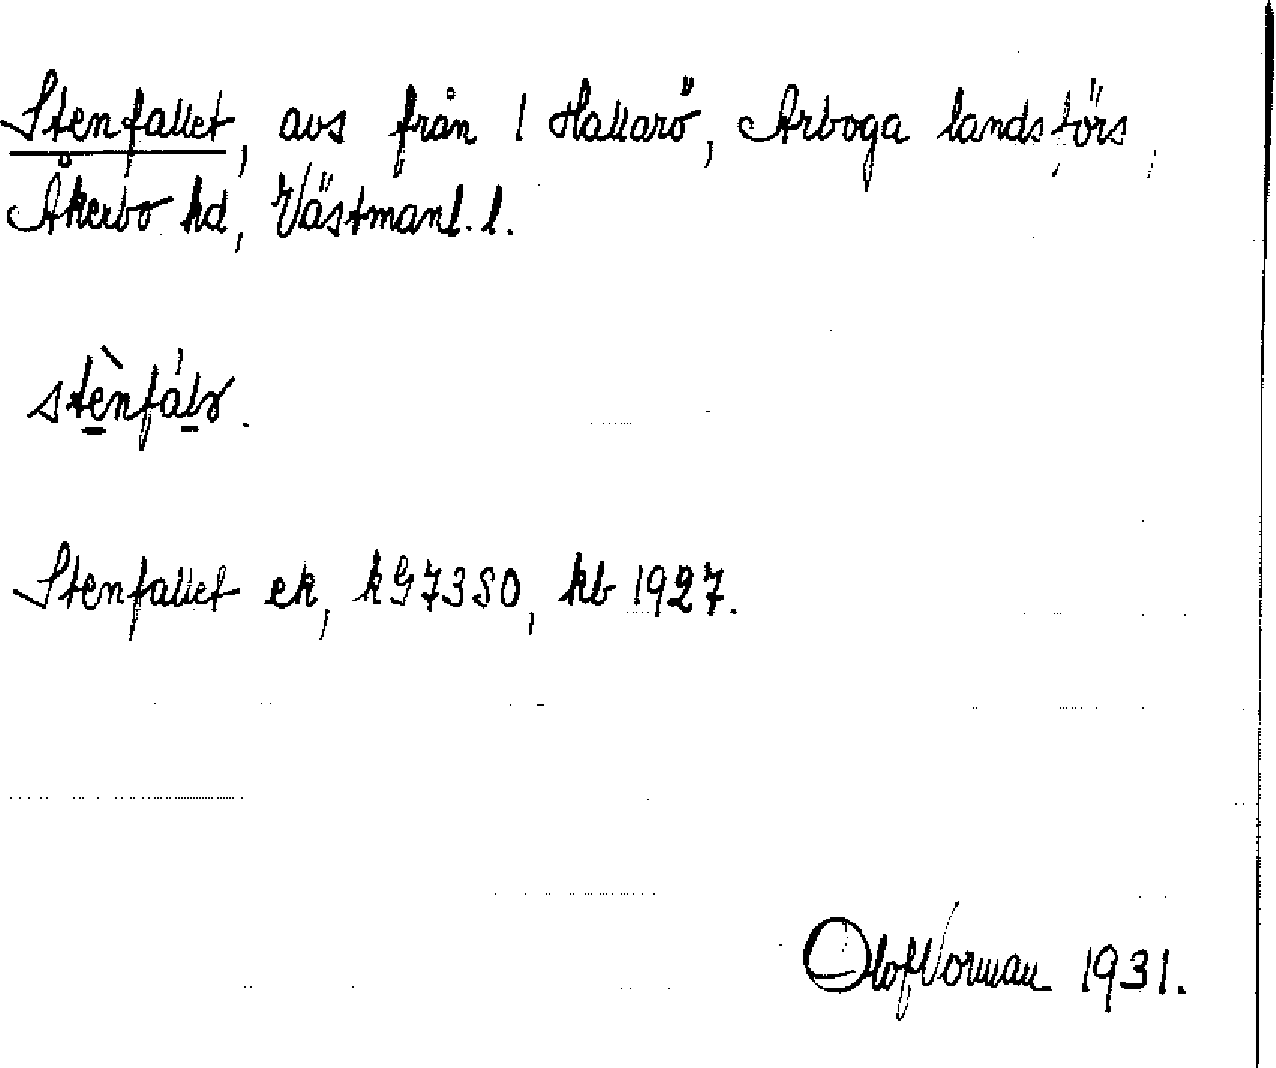 Stenfallet, avs från 1 Hallarö, Arboga landsförs,
Åkerbo hd, Västmanl. l.
Stenfallet ek, kG7380, kb 1927.
Olof Norman 1931.